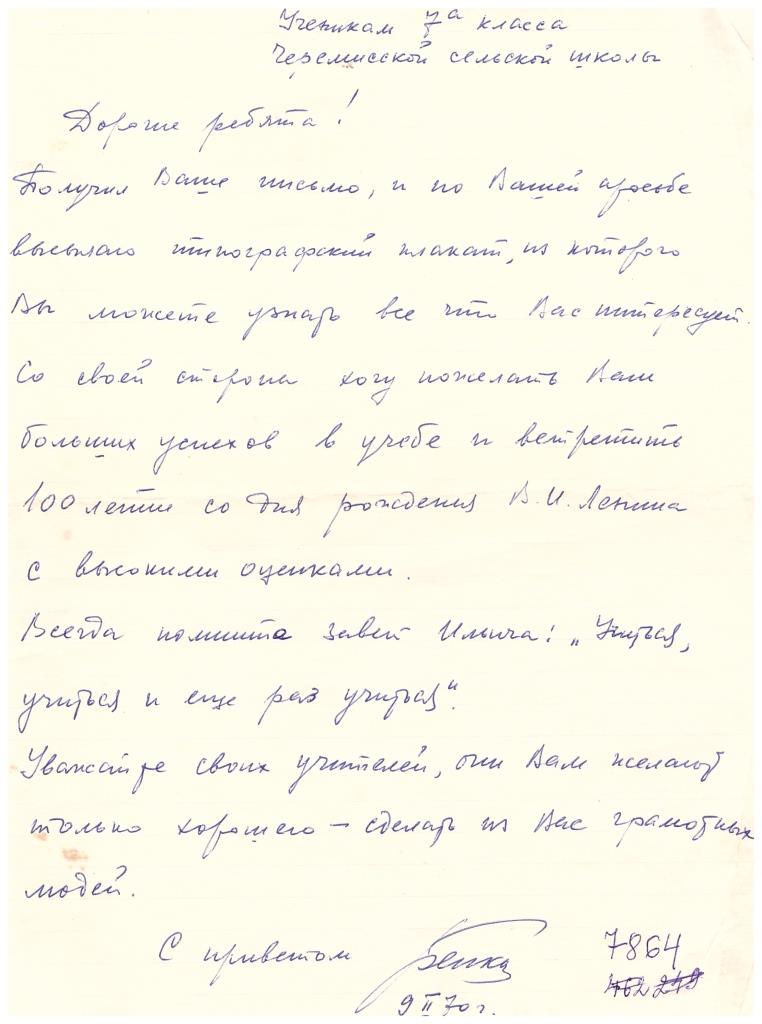 Ученикам 7а класса
Черемисской сельской школы
Дорогие ребята!
Получил Ваше письмо, и по Вашей просьбе
высылаю типографский плакат, из которого
Вы можете узнать все что Вас интересует.
Со своей стороны хочу пожелать Вам
больших успехов в учебе и встретить
100 летие со дня рождения В.И. Ленина
с высокими оценками.
Всегда помните завет Ильича: „Учиться,
учиться и еще раз учиться“.
Уважайте своих учителей, они Вам желают
только хорошего – сделать из Вас грамотных
людей.
С приветом
7864
9 II 70 г.